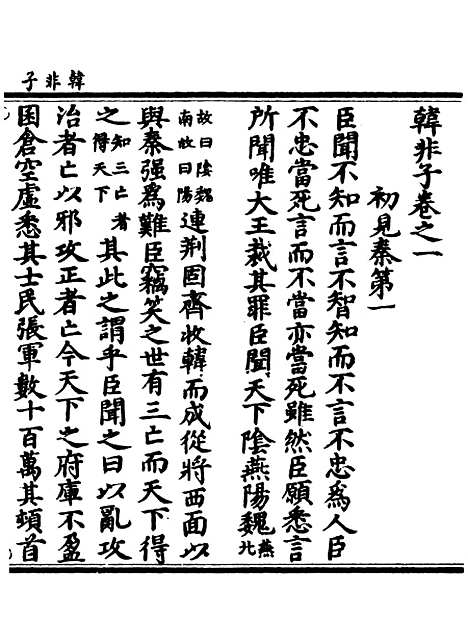 韓非子
韓非子卷之一
初見秦第一
臣聞不知而言不智知而不言不忠爲人臣
不忠當死言而不當亦當死雖然臣願悉言
所聞唯大王裁其罪臣聞天下陰燕陽魏燕北
故曰陰魏南故曰陽連荆固齊收韓而成從將西面以
與秦强爲難臣竊笑之世有三亡而天下得
之知三亡者得天下其此之謂乎臣聞之曰以亂攻
治者亡以邪攻正者亡今天下之府庫不盈
囷倉空虛悉其士民張軍數十百萬其頓首